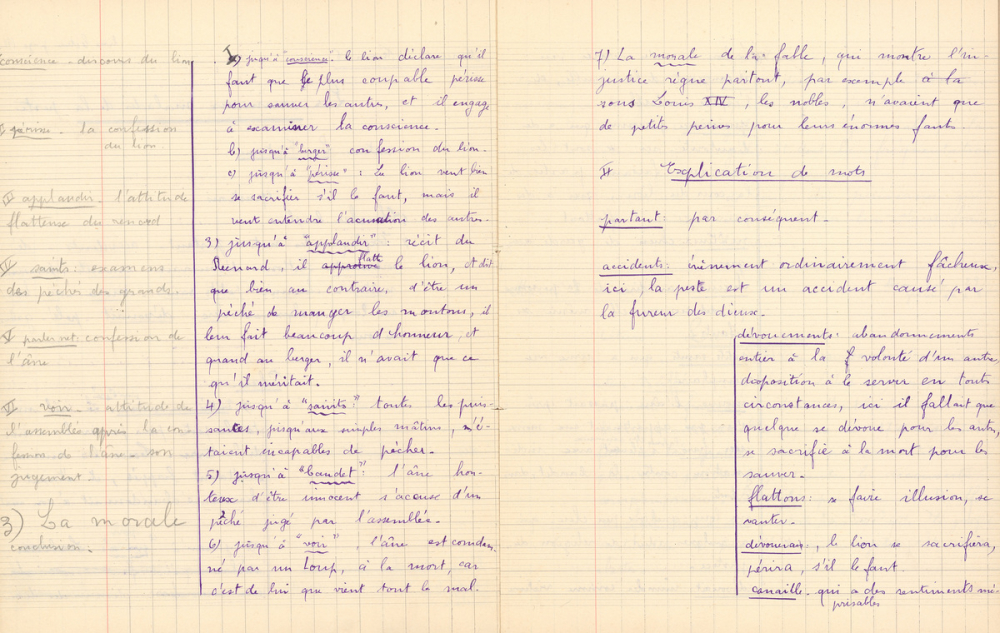 conscience - discours du lion
périsse - la confession
du lion.
IV applaudir l'attitude
flatteuse du renard
IV saints : examens
des péchés des grands.
V confession de
l'âne
VI voir - attitude de
l'assemblée après la con-
fession de l'âne - son
jugement.
3) La morale
conclusion.
a) jusqu'à "conscience" le lion déclare qu'il
faut que le plus coupable périsse
pour sauver les autres, et il engage
à examiner la conscience.
b) jusqu'à "berger" confession du lion.
c) jusqu'à "périsse" : Le lion veut bien
se sacrifier s'il le faut, mais il
veut entendre l'accusation des autres.
3) jusqu'à "applaudir" : récit du
Renard, il approuve flatte le lion, et dit
que bien au contraire, d'être un
péché de manger les moutons, il
leur fait beaucoup d'honneur, et
quand au berger, il n'avait que ce
qu'il méritait.
4) jusqu'à "saints" toutes les puis-
santes, jusqu'aux simples mâtins, n'é-
taient incapables de pécher.
5) jusqu'à "baudet" : l'âne hon-
teux d'être innocent s'accuse d'un
péché jugé par l'assemblée.
6) jusqu'à "voir", l'âne est condam
né par un Loup, à la mort, car
c'est de lui que vient tout le mal.
7) La morale de la fable, qui montre l'in-
justice règne partout, par exemple à la
sous Louis XIV, les nobles, n'avaient que
de petits peines pour leurs énormes fauts
II Explication de mots
partant : par conséquent -
accidents : évènement ordinairement fâcheux,
ici, la peste est un accident causé par
la fureur des dieux.
dévouements : abandonnements
entier à la volonté d'un autre
disposition à le server en touts
circonstances, ici il fallait que
quelque se dévoue pour les auts,
se sacrifié à la mort pour les
sauver.
flattons : se faire illusion, se
vanter -
dévouerai, le lion se sacrifiera,
périra, s'il le faut.
canaille - qui a des sentiments mé-
prisables